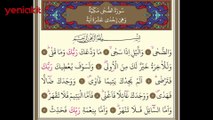 سُورَةُ الضُّحٰى مَكِّيَّةٌ
وَهِيَ إِحْدٰى عَشْرَةَ اٰيَةً
بِسْمِ اللّٰهِ الرَّحْمٰنِ الرَّحِيمِ
وَالضُّحٰى وَالَّيْلِ اِذَا سَجٰى مَا وَدَّعَكَ رَبُّكَ وَمَا قَلٰى
وَلَلْاٰخِرَةُ خَيْرٌ لَكَ مِنَ الْاُولٰى وَلَسَوْفَ يُعْطِيكَ رَبُّكَ
فَتَرْضٰى اَلَمْ يَجِدْكَ يَتِيمًا فَاٰوٰى وَوَجَدَكَ ضَالًّا
فَهَدٰى وَوَجَدَكَ عَائِلًا فَاَغْنٰى فَاَمَّا الْيَتِيمَ فَلَا تَقْهَرْ
وَاَمَّا السَّائِلَ فَلَا تَنْهَرْ وَاَمَّا بِنِعْمَةِ رَبِّكَ فَحَدِّثْ